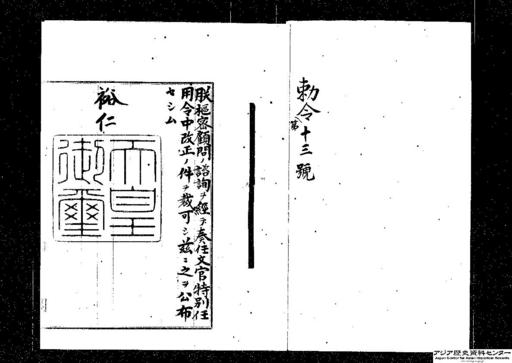 勅令第十三號
朕樞密顧問ノ諮詢ヲ經テ奏任文官特別任
用令中改正ノ件ヲ裁可シ茲ニ之ヲ公布
セシム
裕仁
天皇
御璽
アジア歴史資料センター
Japan Center for Asian Historical Records